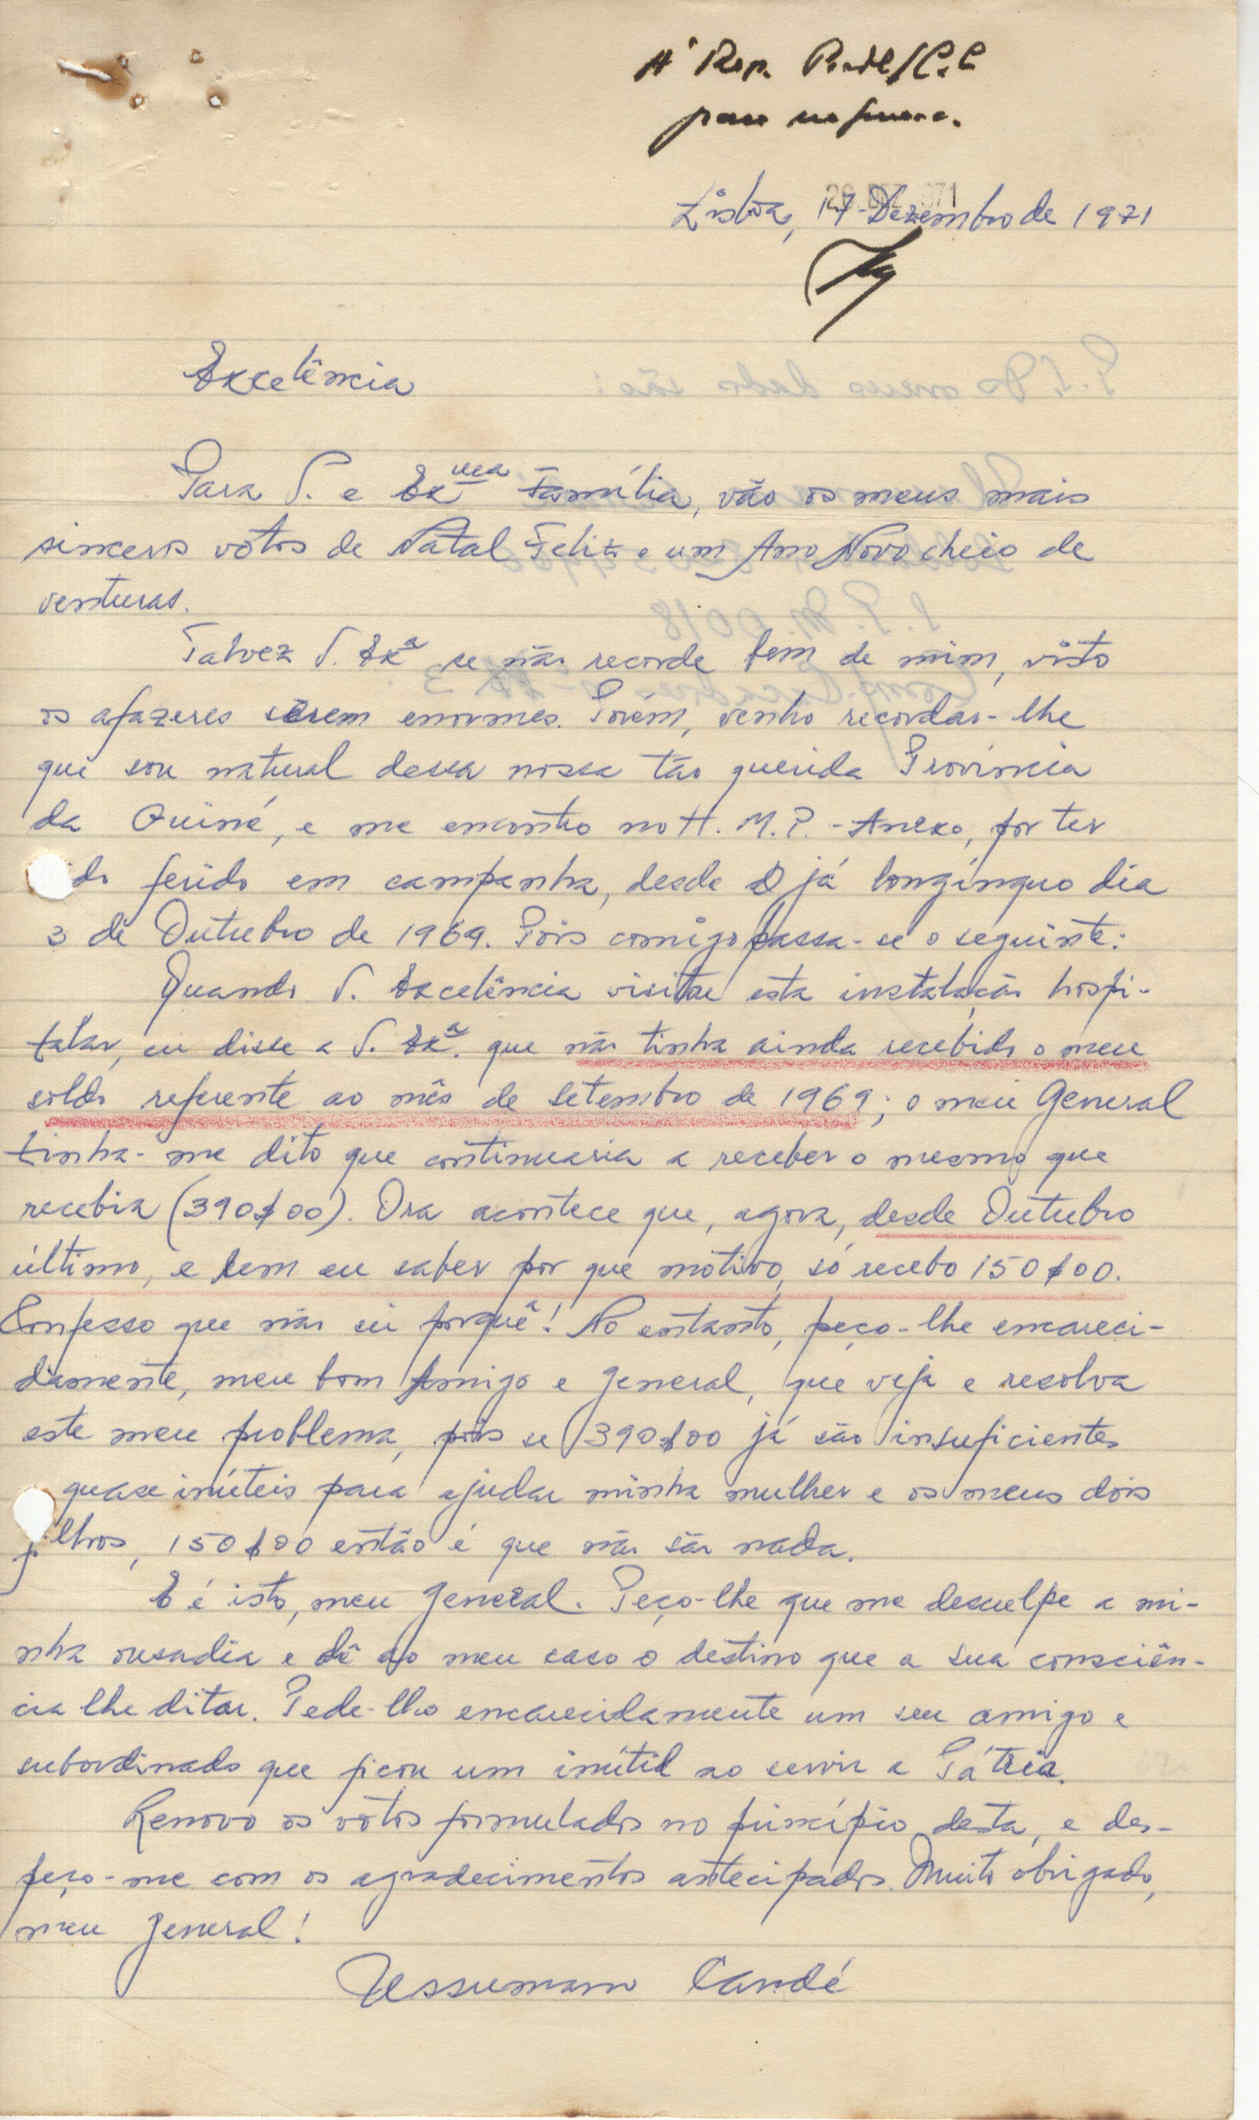 À Rep.
para
20 DEZ 1971
Lisboa, 17-Dezembro de 1971
Excelência
Para V. e Exma Família, vão os meus mais
sinceros votos de Natal Feliz e um Ano Novo cheio de
venturas.
Talvez V. Exª se não recorde bem de mim, visto
os afazeres serem enormes. Porém, venho recordar-lhe
que sou natural dessa nossa tão querida Província
da Guiné, e me encontro no H. M. P. - Anexo, por ter
ido ferido em campanha, desde o já longínquo dia
3 de Outubro de 1969. Pois comigo passa-se o seguinte:
Quando V. Excelência visitou esta instalação hospi-
talar, eu disse a V. Exª. que não tinha ainda recebido o meu
soldo referente ao mês de Setembro de 1969; o meu General
tinha-me dito que continuaria a receber o mesmo que
recebia (390$00). Ora acontece que, agora, desde Outubro
último, e sem eu saber por que motivo, só recebo 150$00.
Confesso que não sei porquê! No entanto, peço-lhe encareci-
damente, meu bom Amigo e General, que veja e resolva
este meu problema, pois se 390$00 já são insuficientes
quase inúteis para ajudar minha mulher e os meus dois
filhos, 150$00 então é que não são nada.
E é isto, meu General. Peço-lhe que me desculpe a mi-
nha ousadia e dê ao meu caso o destino que a sua consciên-
cia lhe ditar. Pede-lho encarecidamente um seu amigo e
subordinado que ficou um inútil ao servir a Pátria.
Renovo os votos formulados no princípio desta, e des-
peço-me com os agradecimentos antecipados. Muito obrigado,
meu General!
Ussumane Candé